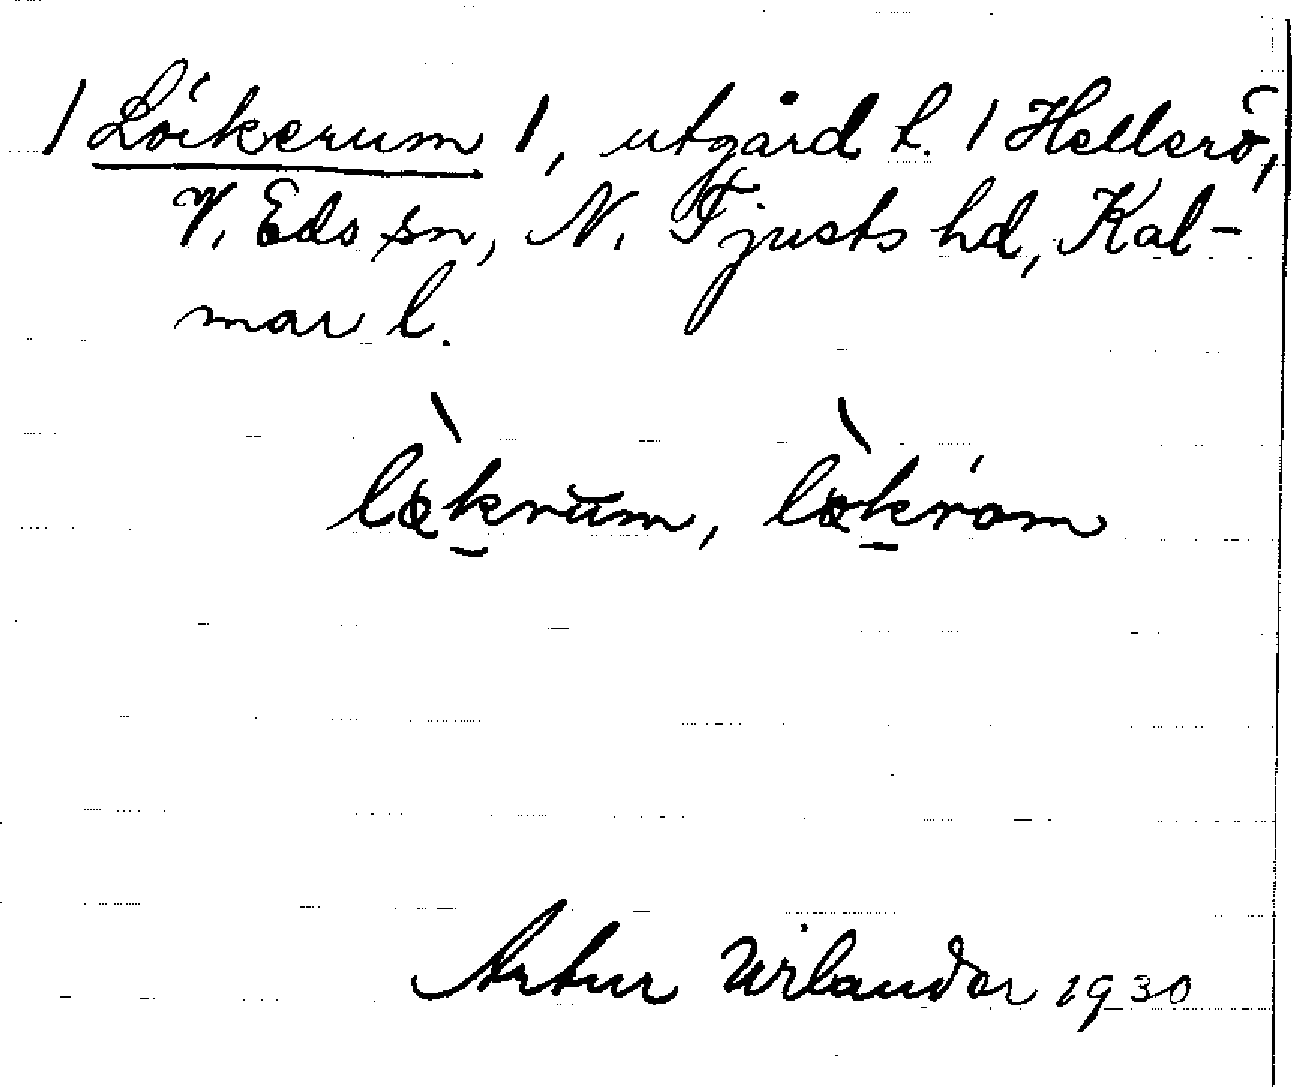 / Lökerum /, utgård t. / Hellerö,
V. Eds sn, N. Tjusts hd, Kal-
mar l.
lø̀krum, lø̀krom
Artur Wilander 1930